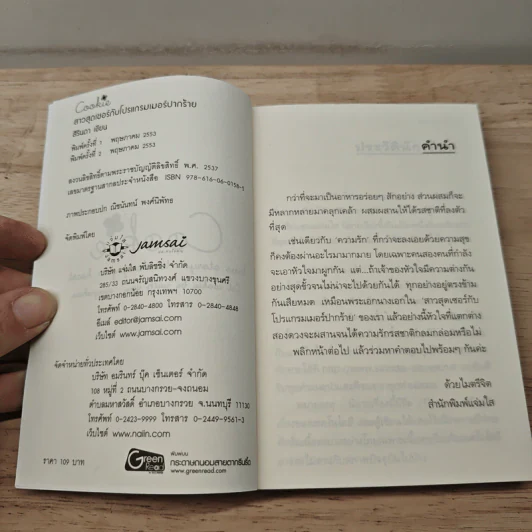 Cookie
สาวสุดเซอร์กับโปรแกรมเมอร์ปากร้าย
สิรินดา เขียน
พิมพ์ครั้งที่ 1 พฤษภาคม 2553
พิมพ์ครั้งที่ 2 พฤษภาคม 2553
สงวนลิขสิทธิ์ตามพระราชบัญญัติลิขสิทธิ์ พ.ศ. 2537
เลขมาตรฐานสากลประจำหนังสือ ISBN 978-616-06-0156-5
ภาพประกอบปก ณัชนันทน์ พงศ์นิพัทธ
จัดพิมพ์โดย
Jamsai
บริษัท แจ่มใส พับลิชชิ่ง จำกัด
285/33 ถนนจรัญสนิทวงศ์ แขวงบางขุนศรี
เขตบางกอกน้อย กรุงเทพฯ 10700
โทรศัพท์ 0-2840-4800 โทรสาร 0-2840-4848
อีเมล์ editor@jamsai.com
เว็บไซต์ www.jamsai.com
จัดจำหน่ายทั่วประเทศโดย
บริษัท อมรินทร์ บุ๊ค เซ็นเตอร์ จำกัด
108 หมู่ที่ 2 ถนนบางกรวย-จงถนอม
ตำบลมหาสวัสดิ์ อำเภอบางกรวย จ.นนทบุรี 11130
โทรศัพท์ 0-2423-9999 โทรสาร 0-2449-9561-3
เว็บไซต์ www.naiin.com
ราคา 109 บาท
Green Read
พิมพ์บน
กระดาษถนอมสายตากรีนรี้ด
www.greenread.com
คำนำ
กว่าที่จะมาเป็นอาหารอร่อยๆ สักอย่าง ส่วนผสมก็จะ
มีหลากหลายมาคลุกเคล้า ผสมผสานให้ได้รสชาติที่ลงตัว
ที่สุด
เช่นเดียวกับ 'ความรัก' ที่กว่าจะลงเอยด้วยความสุข
ก็คงต้องผ่านอะไรมามากมาย โดยเฉพาะคนสองคนที่กำลัง
จะเอาหัวใจมาผูกกัน แต่...ถ้าเจ้าของหัวใจมีความต่างกัน
อย่างสุดขั้วจนไม่น่าจะไปด้วยกันได้ ทุกอย่างอยู่ตรงข้าม
กันเสียหมด เหมือนพระเอกนางเอกใน 'สาวสุดเซอร์กับ
โปรแกรมเมอร์ปากร้าย' ของเรา แล้วอย่างนี้หัวใจที่แตกต่าง
สองดวงจะผสานจนได้ความรักรสชาติกลมกล่อมหรือไม่
พลิกหน้าต่อไป แล้วร่วมหาคำตอบไปพร้อมๆ กันค่ะ
ด้วยไมตรีจิต
สำนักพิมพ์แจ่มใส